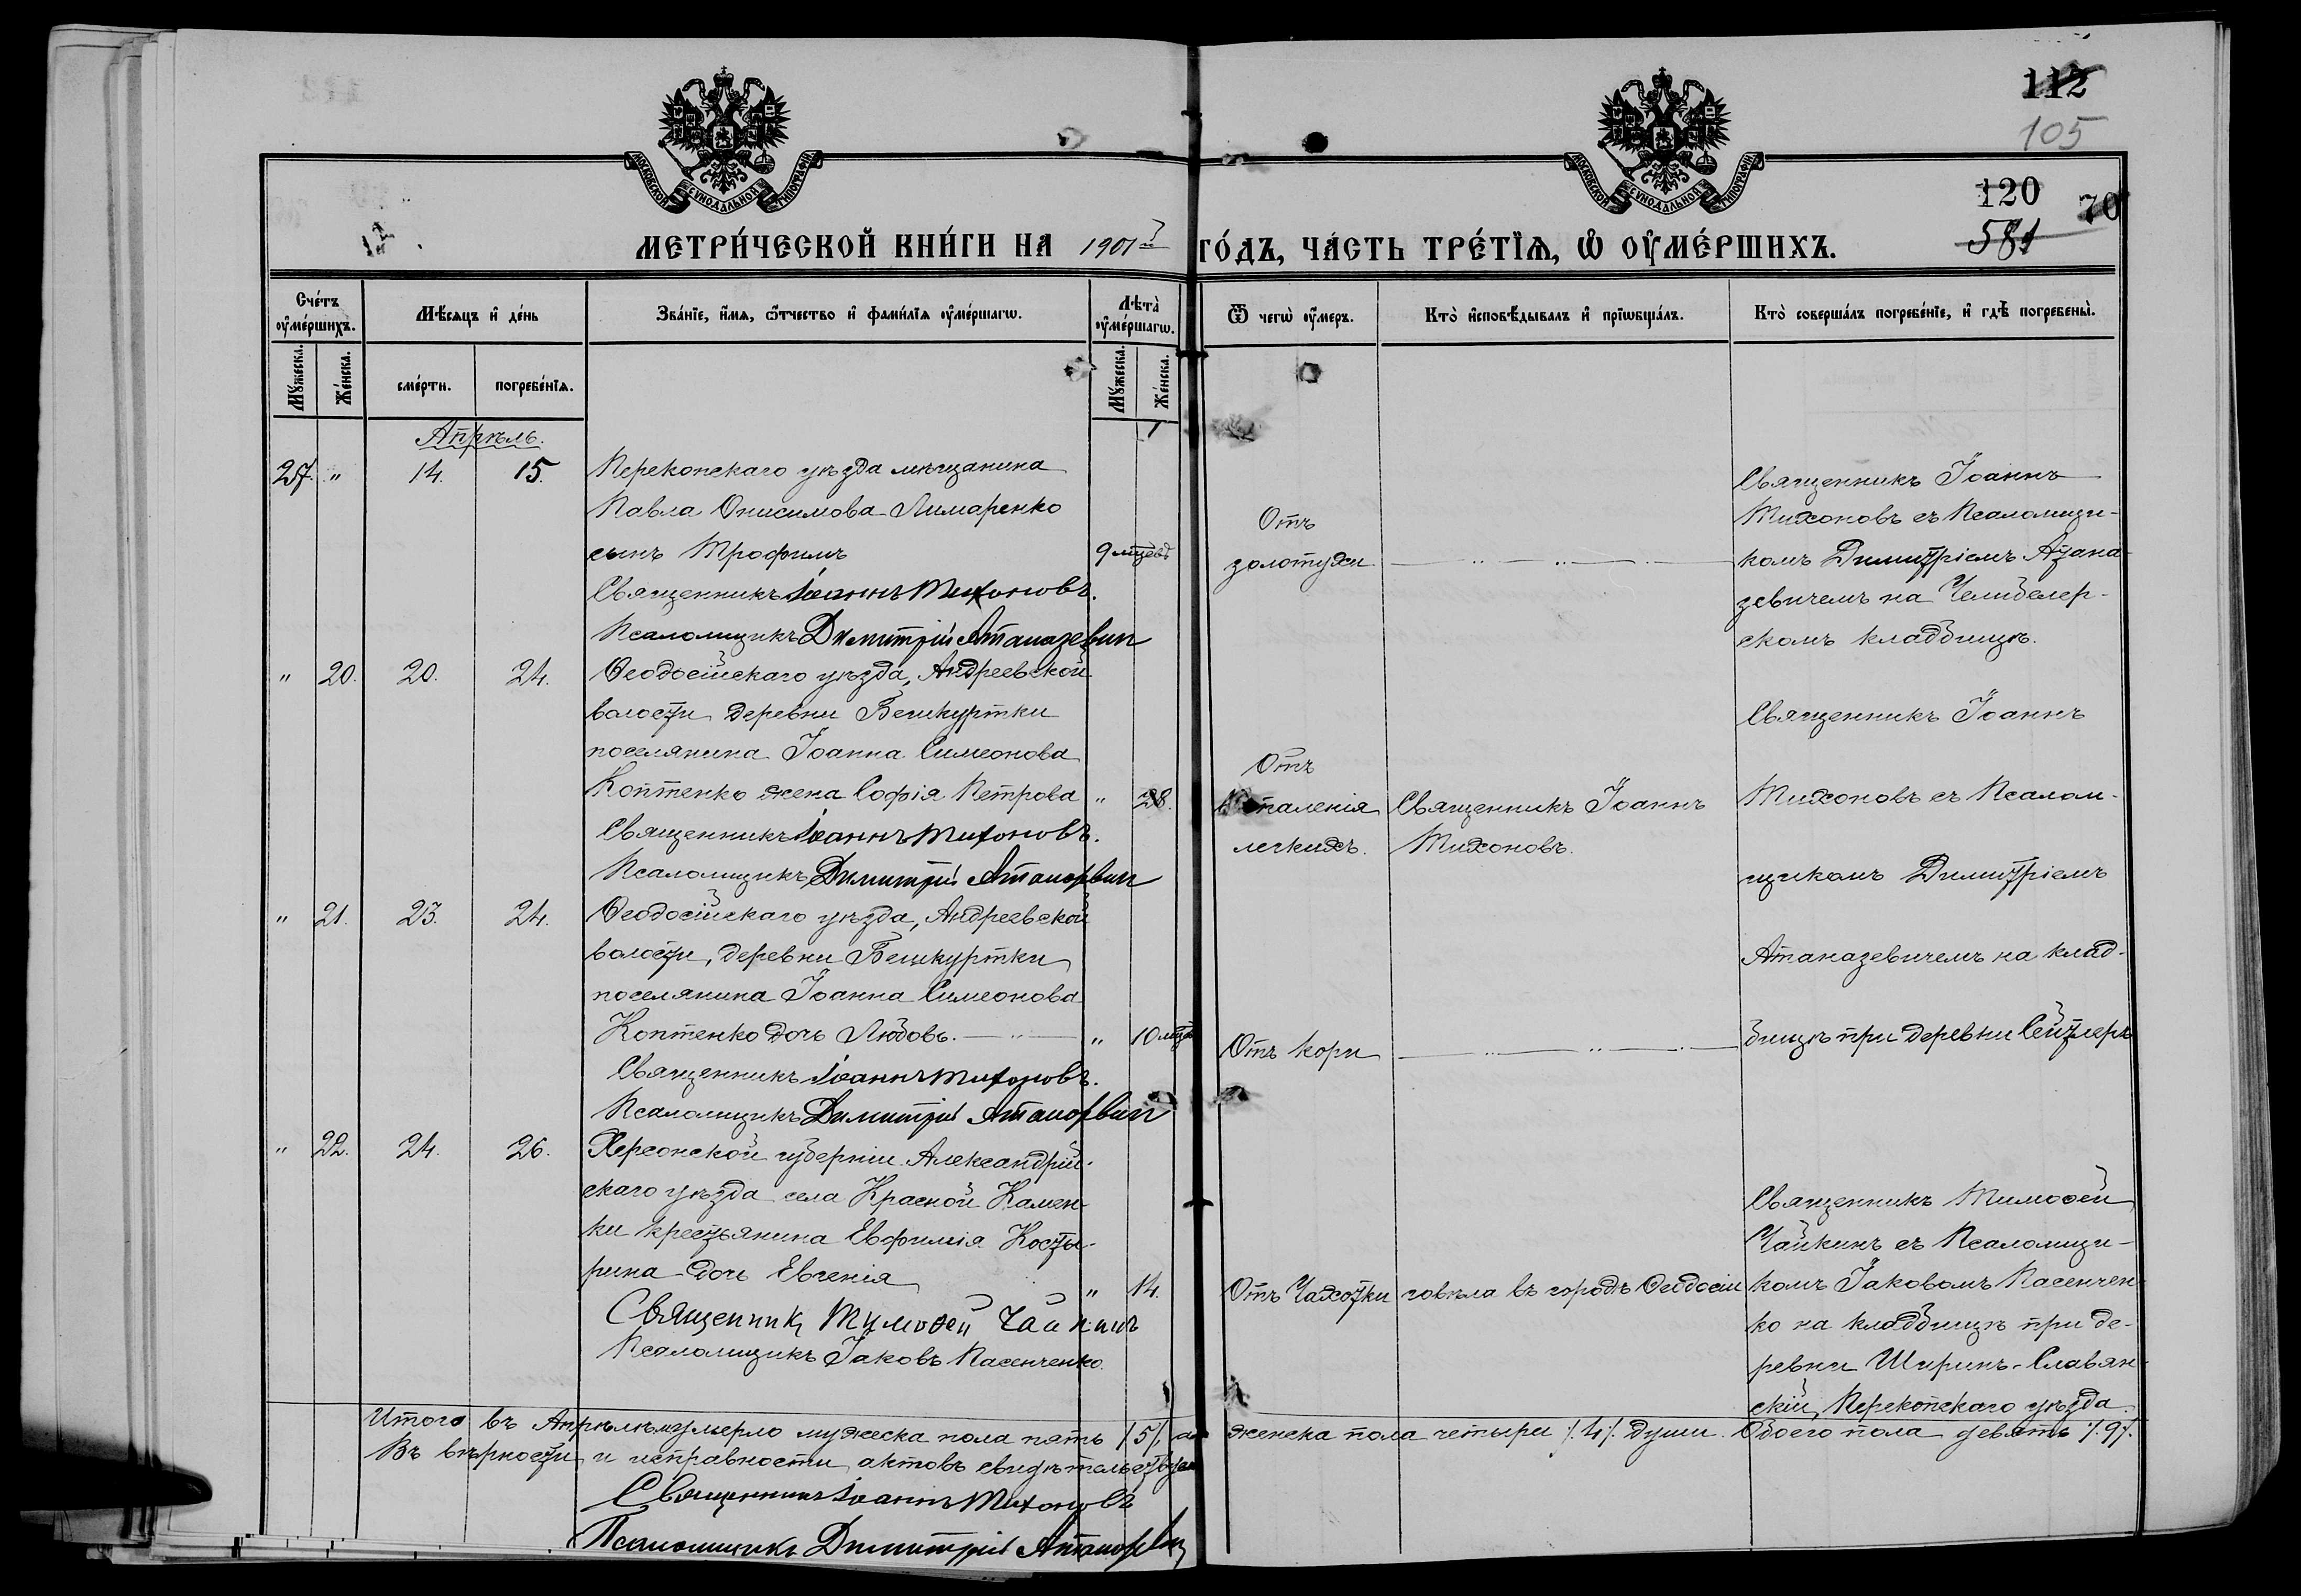 112
105
120
70
581
МОСКОВСКОЙ СѴНОДАЛЬНОЙ ТИПОГРАФІИ
МОСКОВСКОЙ СѴНОДАЛЬНОЙ ТИПОГРАФІИ
МЕТРИ́ЧЕСКОЙ КНИ́ГИ НА 1901й ГО́ДЪ, ЧА́СТЬ ТРЕ́ТІѦ, Ѡ ОУМЕ́РШИХЪ.
Сче́тъ оуме́ршихъ.
Мѣ́сѧцъ и де́нь
Зва́нїе, и́мѧ, ѻ́тчество и фами́лїѧ оуме́ршагѡ.
Лѣта̀ оуме́ршагѡ.
Ѿ чегѡ̀ оу́меръ.
Кто̀ и̓сповѣ́дывалъ и̓ прїѡбща́лъ.
Кто̀ соверша́лъ погребе́нїе, и̓ гдѣ̀ погребены̀.
Мꙋ́жеска.
Же́нска.
сме́рти.
погребе́нїѧ.
Мꙋ́жеска.
Же́нска.
Апрѣль.
27. " 14. 15. Перекопскаго уѣзда мѣщанина
Павла Онисимова Лимаренко
сынъ Трофимъ 9 мцевъ
Священникъ Іоаннъ Тихоновъ.
Псаломщикъ Димитрій Атаназевич
Отъ
золотухи
Священникъ Іоаннъ
Тихоновъ съ Псаломщи-
комъ Димитріемъ Атана-
зевичемъ на Челибелер-
скомъ кладбищѣ.
" 20. 20. 24. Ѳеодосійскаго уѣзда, Андреевской
волости деревни Бешкуртки
поселянина Іоанна Симеонова
Коптенко жена Софія Петрова " 28.
Священникъ Іоаннъ Тихоновъ.
Псаломщикъ Димитрій Атаназевич
Отъ
воспаленія
легкихъ.
Священникъ Іоаннъ
Тихоновъ.
Священникъ Іоаннъ
Тихоновъ съ Псалом-
щикомъ Димитріемъ
Атаназевичемъ на клад-
бищѣ при деревни Сейтлеръ
" 21. 23. 24. Ѳеодосійскаго уѣзда, Андреевской
волости, деревни Бешкуртки
поселянина Іоанна Симеонова
Коптенко дочь Любовь. " 10 мцев
Священникъ Іоаннъ Тихоновъ.
Псаломщикъ Димитрій Атаназевич
Отъ кори
" 22. 24. 26. Херсонской губерніи Александрій-
скаго уѣзда села Красной Камен-
ки крестьянина Евфимія Косты-
рина дочь Евгенія " 14.
Священникъ Тимоѳей Чайкинъ
Псаломщикъ Іаковъ Пасенченко.
Отъ Чахотки
говѣла въ городѣ Ѳеодосіи
Священникъ Тимоѳей
Чайкинъ съ Псаломщи-
комъ Іаковомъ Пасенчен-
ко на кладбищѣ при де-
ревни Ширинъ-Славян-
скій, Перекопскаго уѣзда.
Итого въ Апрѣлѣ умерло мужеска пола пять /5/, а женска пола четыри /.4/. души. Обоего пола девять /.9/.
Въ вѣрности и исправности актовъ свидѣтельствуем
Священникъ Іоаннъ Тихоновъ
Псаломщикъ Димитрій Атаназевич